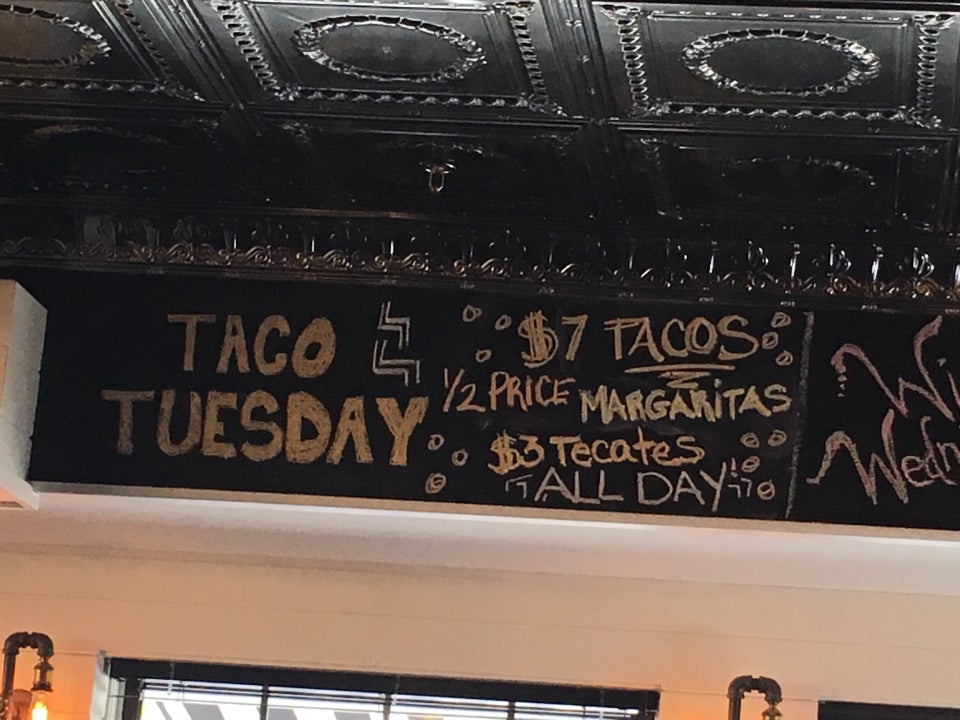 TACO
TUESDAY
$7 TACOS
1/2 PRICE MARGARITAS
$3 Tecates
ALL DAY!